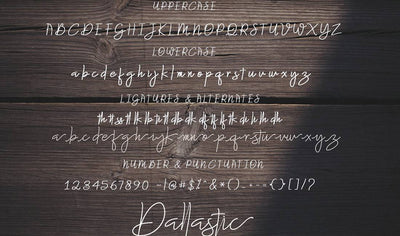 UPPERCASE
ABCDEFGHIJKLMNOPQRSTUVWXYZ
LOWERCASE
abcdefghijklmnopqrstuvwxyz
LIGATURES & ALTERNATES
abcdefghijklmnopqrstuvwxyz
NUMBER & PUNCTUATION
1234567890
Dallastic